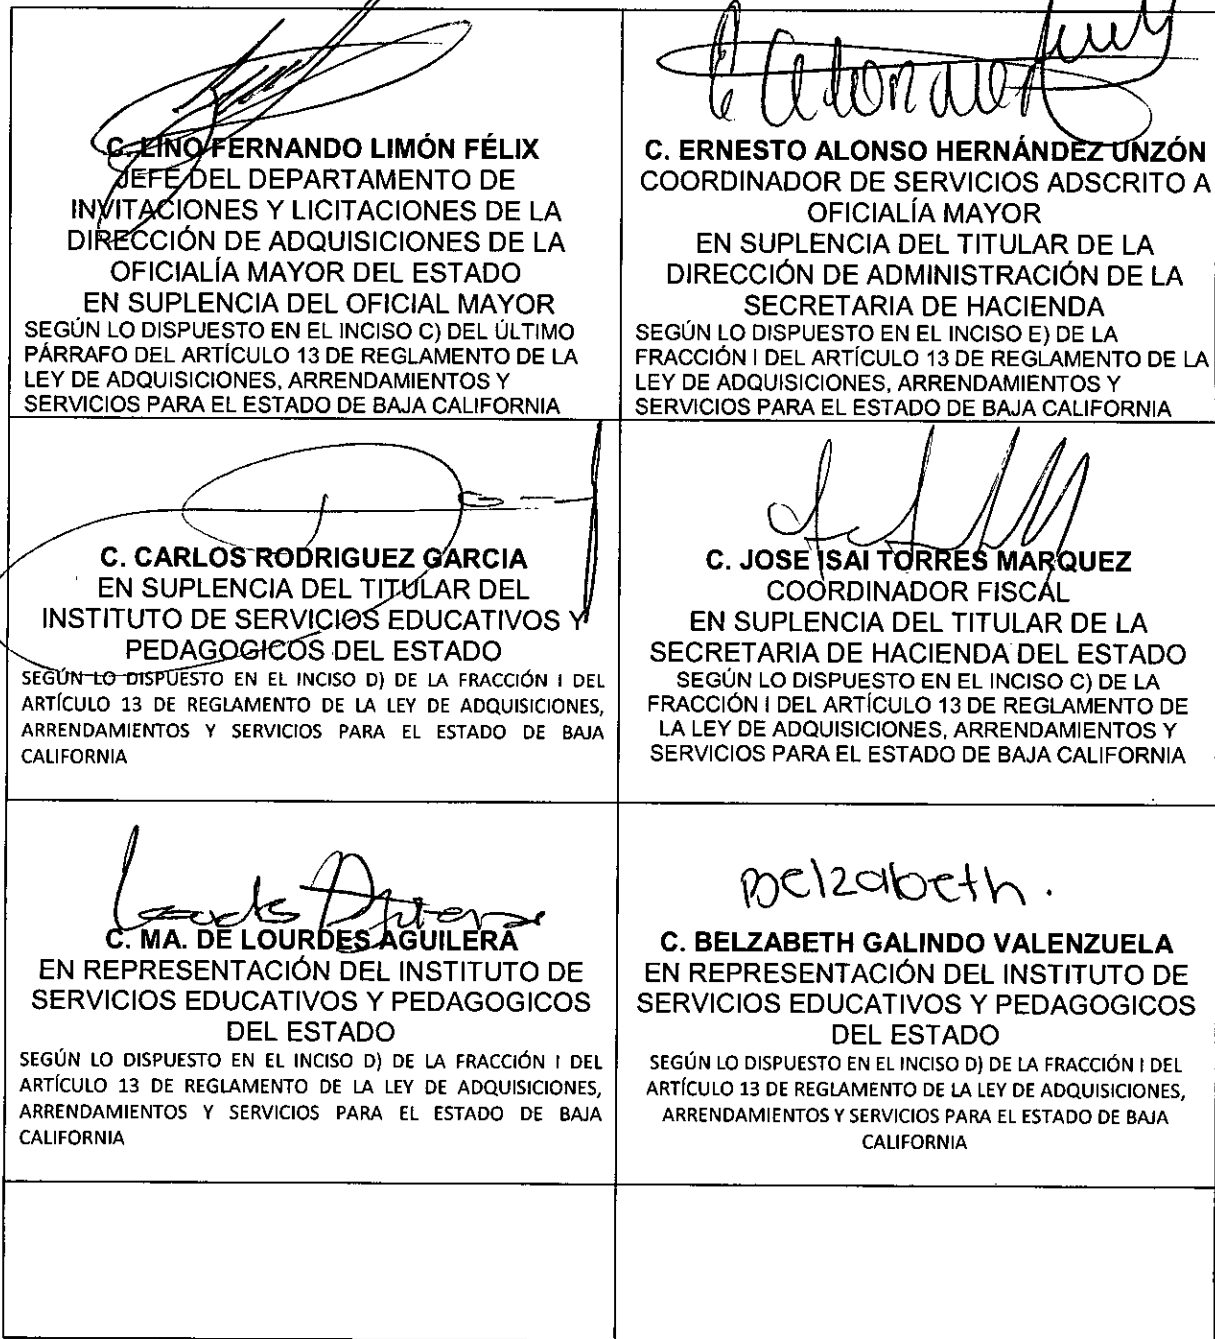 C. LINO FERNANDO LIMÓN FÉLIX
JEFE DEL DEPARTAMENTO DE
INVITACIONES Y LICITACIONES DE LA
DIRECCIÓN DE ADQUISICIONES DE LA
OFICIALÍA MAYOR DEL ESTADO
EN SUPLENCIA DEL OFICIAL MAYOR
SEGÚN LO DISPUESTO EN EL INCISO C) DEL ÚLTIMO
PÁRRAFO DEL ARTÍCULO 13 DE REGLAMENTO DE LA
LEY DE ADQUISICIONES, ARRENDAMIENTOS Y
SERVICIOS PARA EL ESTADO DE BAJA CALIFORNIA
C. ERNESTO ALONSO HERNÁNDEZ UNZÓN
COORDINADOR DE SERVICIOS ADSCRITO A
OFICIALÍA MAYOR
EN SUPLENCIA DEL TITULAR DE LA
DIRECCIÓN DE ADMINISTRACIÓN DE LA
SECRETARIA DE HACIENDA
SEGÚN LO DISPUESTO EN EL INCISO E) DE LA
FRACCIÓN I DEL ARTÍCULO 13 DE REGLAMENTO DE LA
LEY DE ADQUISICIONES, ARRENDAMIENTOS Y
SERVICIOS PARA EL ESTADO DE BAJA CALIFORNIA
C. CARLOS RODRIGUEZ GARCIA
EN SUPLENCIA DEL TITULAR DEL
INSTITUTO DE SERVICIOS EDUCATIVOS Y
PEDAGOGICOS DEL ESTADO
SEGÚN LO DISPUESTO EN EL INCISO D) DE LA FRACCIÓN I DEL
ARTÍCULO 13 DE REGLAMENTO DE LA LEY DE ADQUISICIONES,
ARRENDAMIENTOS Y SERVICIOS PARA EL ESTADO DE BAJA
CALIFORNIA
C. JOSE ISAI TORRES MARQUEZ
COORDINADOR FISCAL
EN SUPLENCIA DEL TITULAR DE LA
SECRETARIA DE HACIENDA DEL ESTADO
SEGÚN LO DISPUESTO EN EL INCISO C) DE LA
FRACCIÓN I DEL ARTÍCULO 13 DE REGLAMENTO DE
LA LEY DE ADQUISICIONES, ARRENDAMIENTOS Y
SERVICIOS PARA EL ESTADO DE BAJA CALIFORNIA
C. MA. DE LOURDES AGUILERA
EN REPRESENTACIÓN DEL INSTITUTO DE
SERVICIOS EDUCATIVOS Y PEDAGOGICOS
DEL ESTADO
SEGÚN LO DISPUESTO EN EL INCISO D) DE LA FRACCIÓN I DEL
ARTÍCULO 13 DE REGLAMENTO DE LA LEY DE ADQUISICIONES,
ARRENDAMIENTOS Y SERVICIOS PARA EL ESTADO DE BAJA
CALIFORNIA
Belzabeth.
C. BELZABETH GALINDO VALENZUELA
EN REPRESENTACIÓN DEL INSTITUTO DE
SERVICIOS EDUCATIVOS Y PEDAGOGICOS
DEL ESTADO
SEGÚN LO DISPUESTO EN EL INCISO D) DE LA FRACCIÓN I DEL
ARTÍCULO 13 DE REGLAMENTO DE LA LEY DE ADQUISICIONES,
ARRENDAMIENTOS Y SERVICIOS PARA EL ESTADO DE BAJA
CALIFORNIA